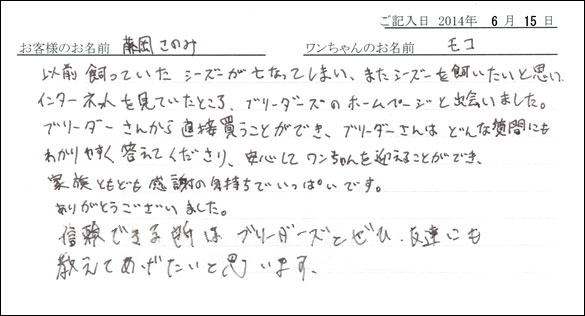 ご記入日 2014年 6月 15日
お客様のお名前 藤岡 さのみ ワンちゃんのお名前 モコ
以前 飼っていた シーズーが亡くなってしまい、またシーズーを飼いたいと思い、
インターネットを見ていたところ、ブリーダーズのホームページと出会いました。
ブリーダーさんから 直接買うことができ、ブリーダーさんは どんな質問にも
わかりやすく 答えてくださり、安心して ワンちゃんを迎えることができ、
家族ともども 感謝の気持ちでいっぱいです。
ありがとうございました。
信頼できる所は ブリーダーズとぜひ、友達にも
教えてあげたいと思います。